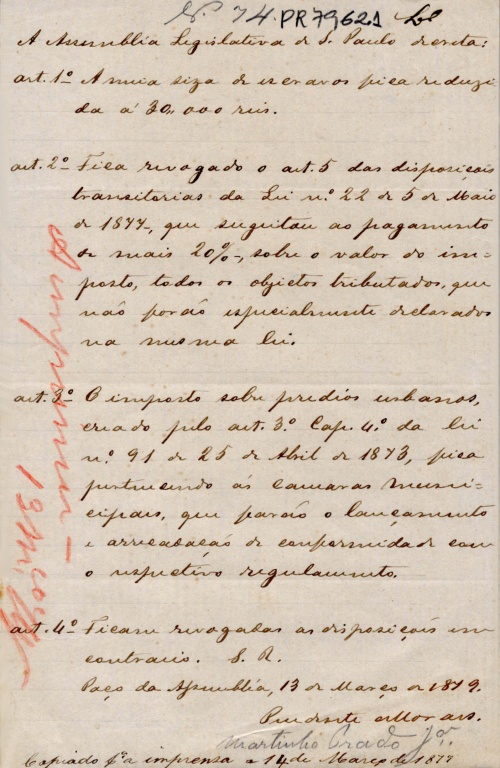 N. 74. PR79621
A Assembléa Legislativa de S. Paulo decreta:
art. 1º A meia siza de escravos fica reduzi
da á 30,000 reis.
art. 2º Fica revogado o art. 5 das disposiçoẽs
transitorias da Lei nº. 22 de 5 de Maio
de 1877, que sugeitou ao pagamento
de mais 20%, sobre o valor do im-
posto, todos os objectos tributados, que
naõ foraõ especialmente declarados
na mesma lei.
art. 3º O imposto sobre predios urbanos,
creado pelo art. 3.º Cap. 4.º da lei
nº. 91 de 25 de Abril de 1873, fica
pertencendo ás camaras muni-
cipaes, que faraõ o lançamento
e arrecadaçaõ de conformidade com
o respectivo regulamento.
art. 4º Ficam revogadas as disposiçoẽs em
contrario. S. R.
Paço da Assembléa, 13 de Março de 1879.
Prudente Moraes.
Martinho Prado Jor.
Copiado pª a imprensa a 14 de Março de 1879
A imprimir —
13 Março 79